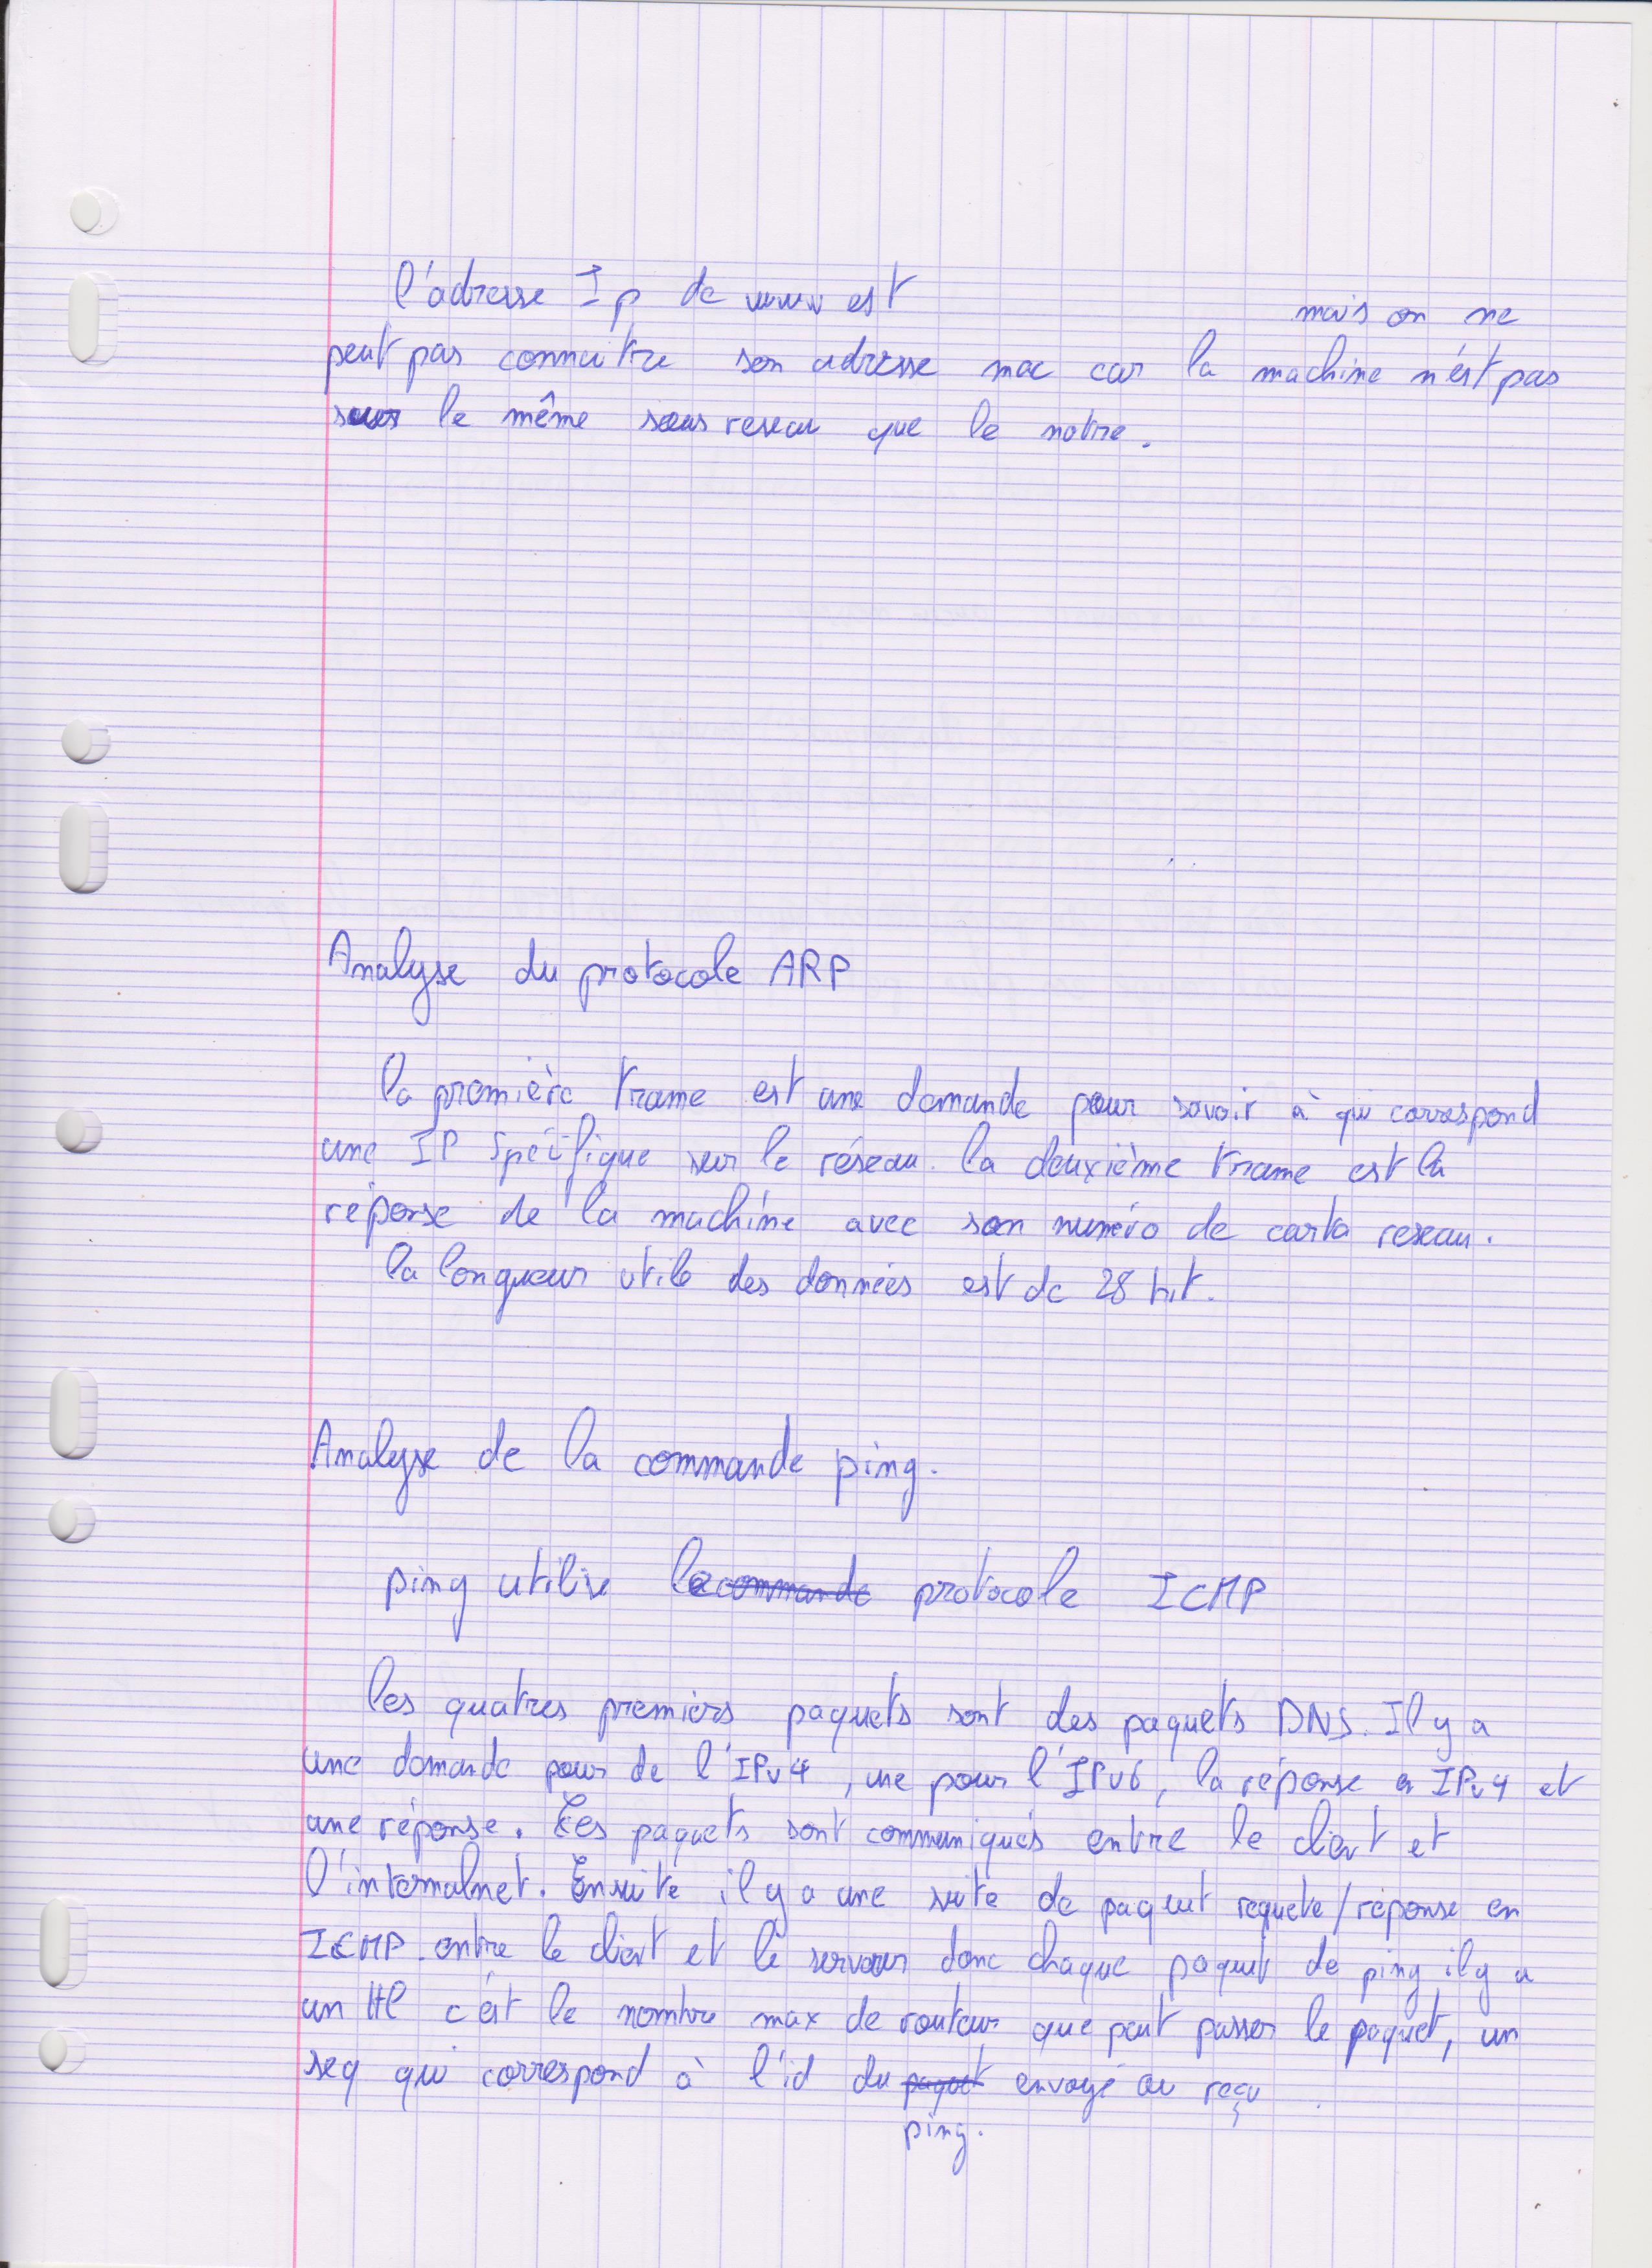 l'adresse Ip de www est mais on ne
peut pas connaitre son adresse mac car la machine n'est pas
sur le même sous reseau que le notre.
Analyse du protocole ARP
la première trame est une demande pour savoir à qui correspond
une IP spécifique sur le réseau. la deuxième trame est la
réponse de la machine avec son numéro de carte reseau.
la longueur utile des données est de 28 bit.
Analyse de la commande ping.
ping utilise le commande protocole ICMP
les quatres premiers paquets sont des paquets DNS. Il y a
une demande pour de l'IPv4, une pour l'IPv6, la réponse en IPv4 et
une réponse. Les paquets sont communiqués entre le client et
l'internalnet. Ensuite il y a une suite de paquet requete/réponse en
ICMP entre le client et le serveur donc chaque paquet de ping il y a
un ttl c'est le nombre max de routeur que peut passer le paquet, un
seq qui correspond à l'id du paquet envoyé ou reçu
ping.